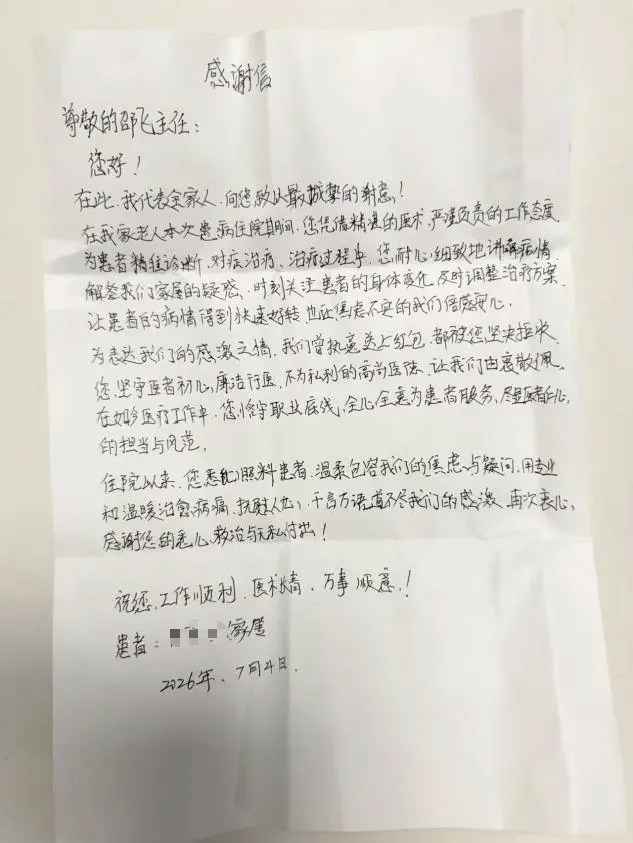 感谢信
尊敬的邵飞主任：
您好！
在此,我代表全家人,向您致以最诚挚的谢意！
在我家老人本次患病住院期间,您凭借精湛的医术,严谨负责的工作态度,
为患者精准诊断,对症治疗、治疗过程中,您耐心,细致地讲解病情,
解答我们家属的疑惑、时刻关注患者的身体变化,及时调整治疗方案,
让患者的病情得到快速好转,也让焦虑不安的我们倍感安心。
为表达我们的感激之情,我们曾执意送上红包,都被您坚决拒收,
您,坚守医者初心,廉洁行医,不为私利的高尚医德,让我们由衷敬佩。
在如医疗工作中,您恪守职业底线,全心全意为患者服务,尽显医者仁心,
的担当与风范。
住院以来,您悉心照料患者,温柔包容我们的焦虑与疑问,用专业
和温暖治愈病痛,抚慰人心,千言万语道不尽我们的感激,再次衷心,
感谢您的悉心救治与无私付出！
祝您,工作顺利,医术精,万事顺意！
患者：家属
2026年,7月4日.